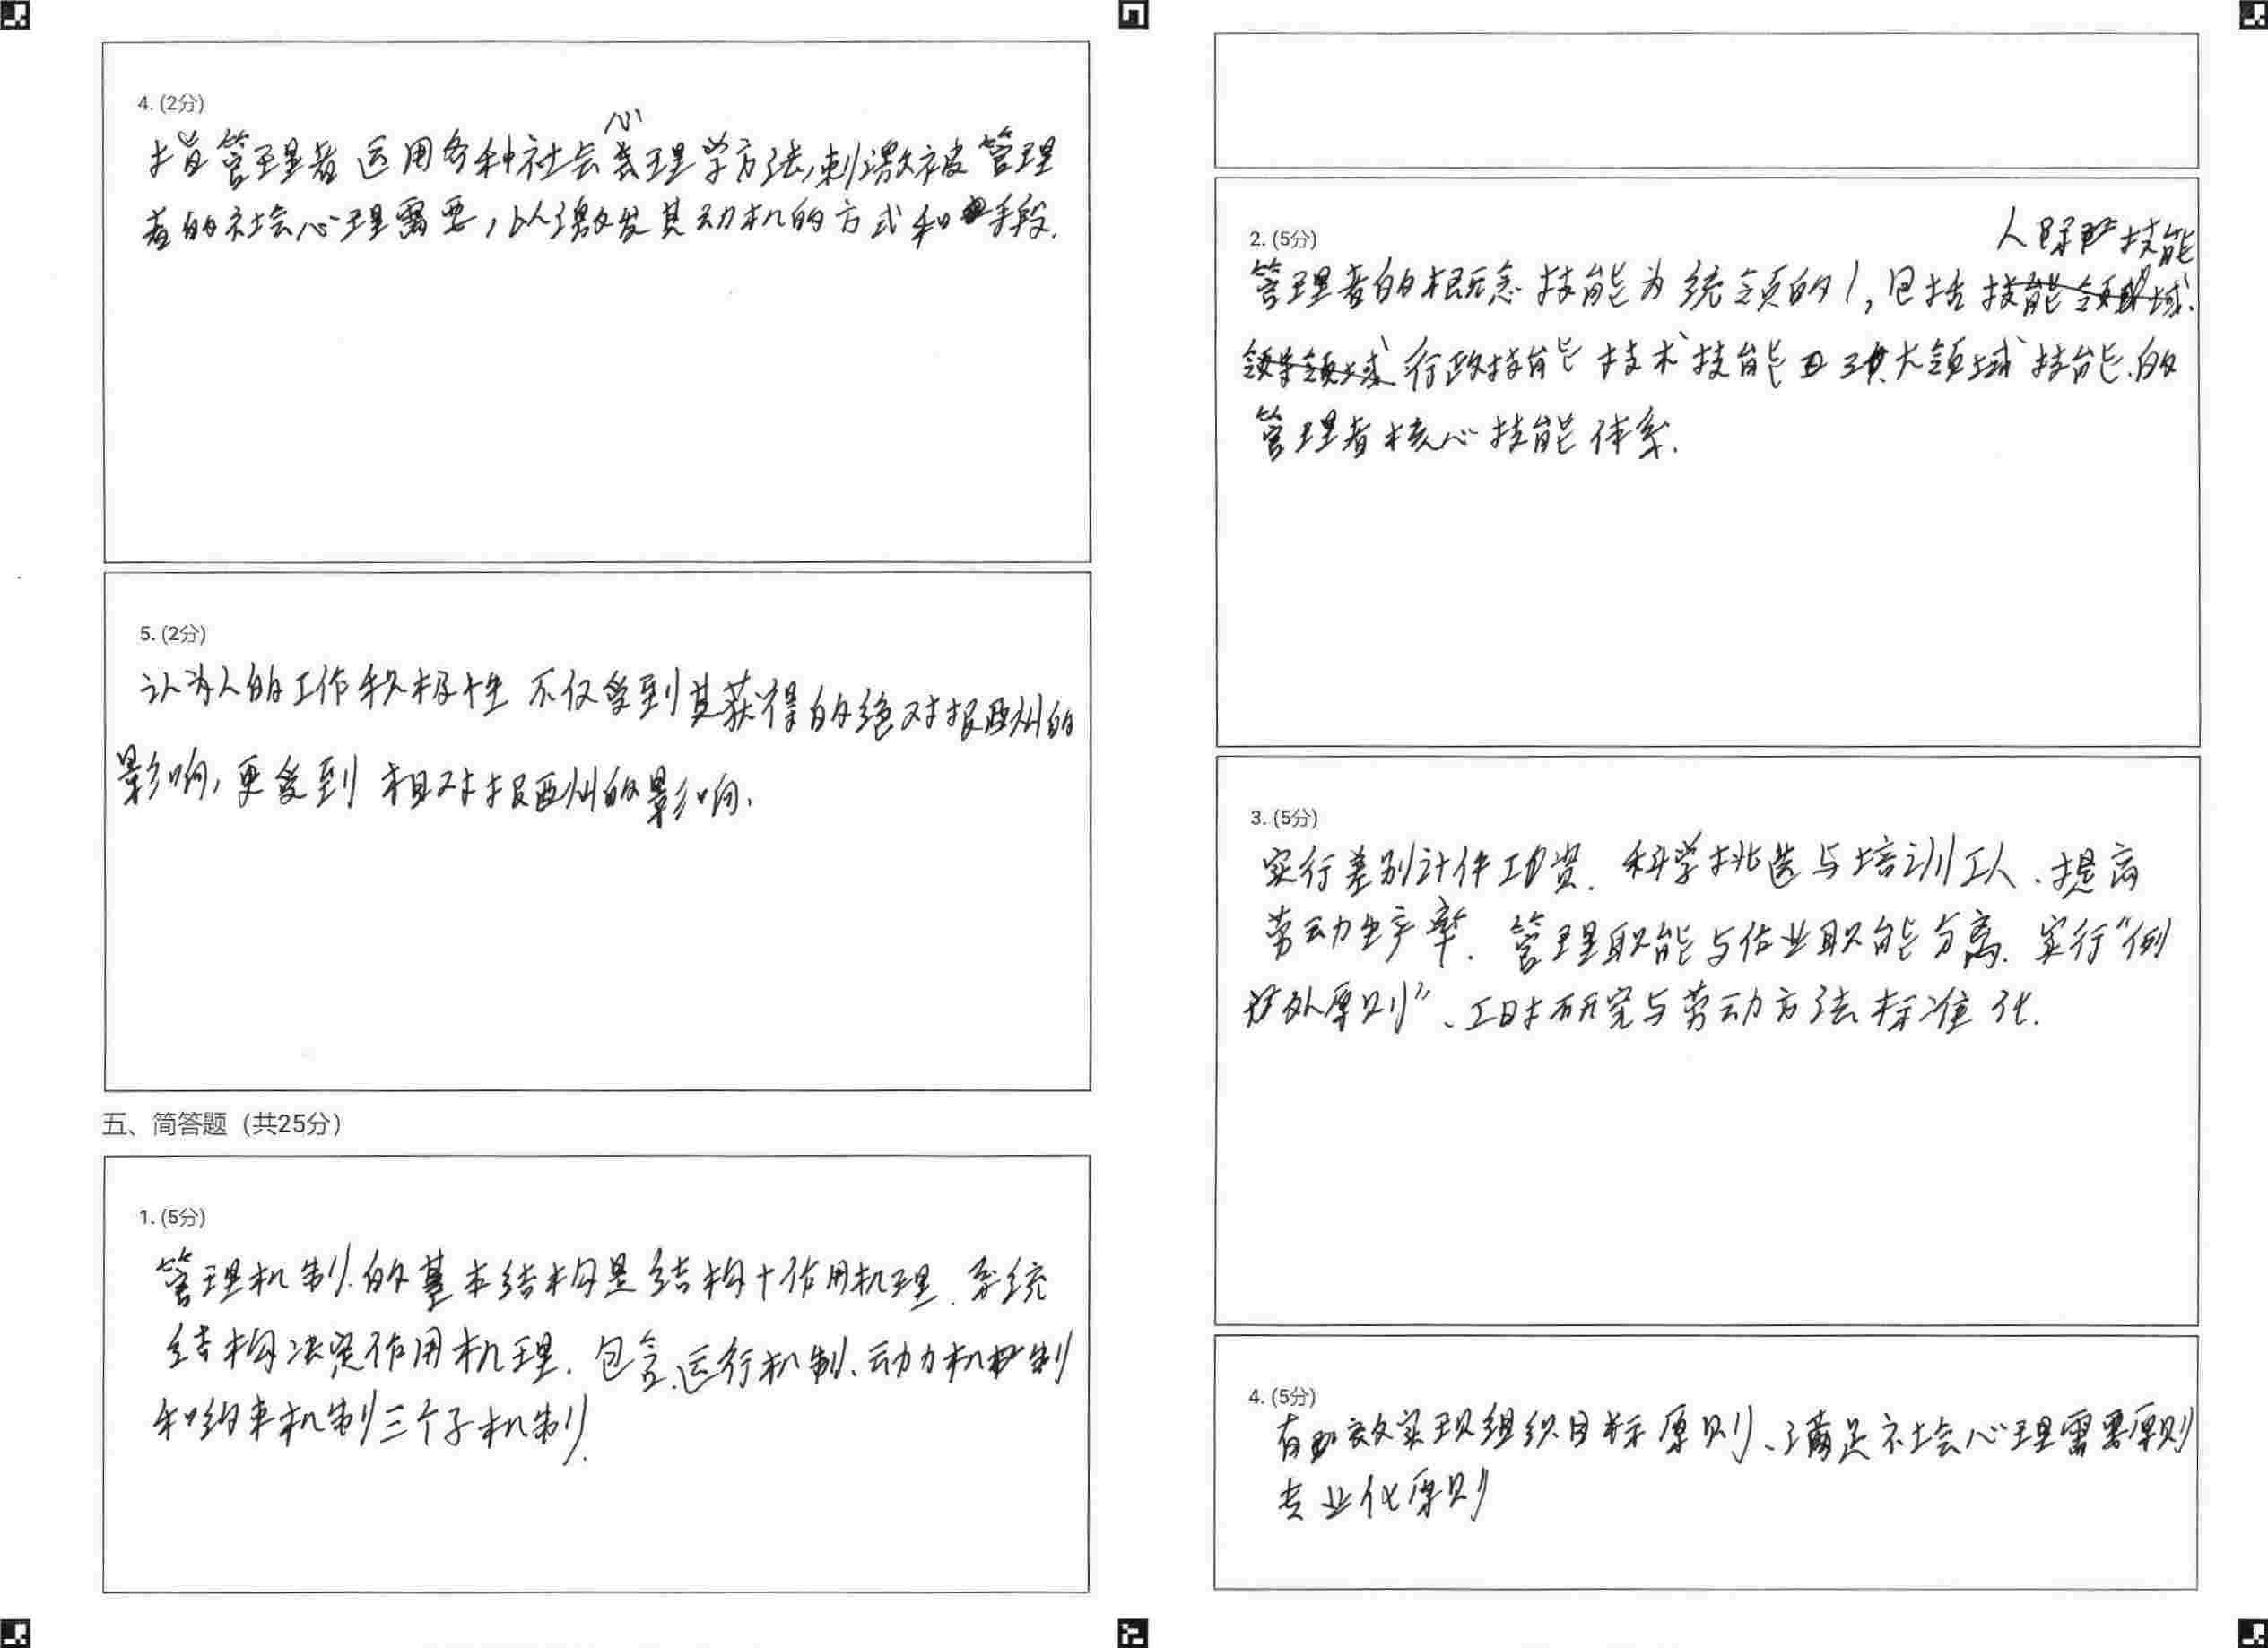 4. (2分)
指管理者运用各种社会心理学方法,刺激被管理
者的社会心理需要,以激发其动机的方式和手段.
5. (2分)
认为人的工作积极性不仅受到其获得的绝对报酬的
影响,更受到相对报酬的影响.
五、简答题（共25分）
1. (5分)
管理机制的基本结构是结构+作用机理.系统
结构决定作用机理.包含运行机制、动力机制
和约束机制三个子机制.
2. (5分)
人际技能
管理者的概念技能为统领的,包括技能领域.
领导领域行政技能技术技能三大领域技能.的
管理者核心技能体系.
3. (5分)
实行差别计件工资.科学挑选与培训工人、提高
劳动生产率.管理职能与作业职能分离.实行“例
外原则”、工时研究与劳动方法标准化.
4. (5分)
有效实现组织目标原则、满足社会心理需要原则
专业化原则